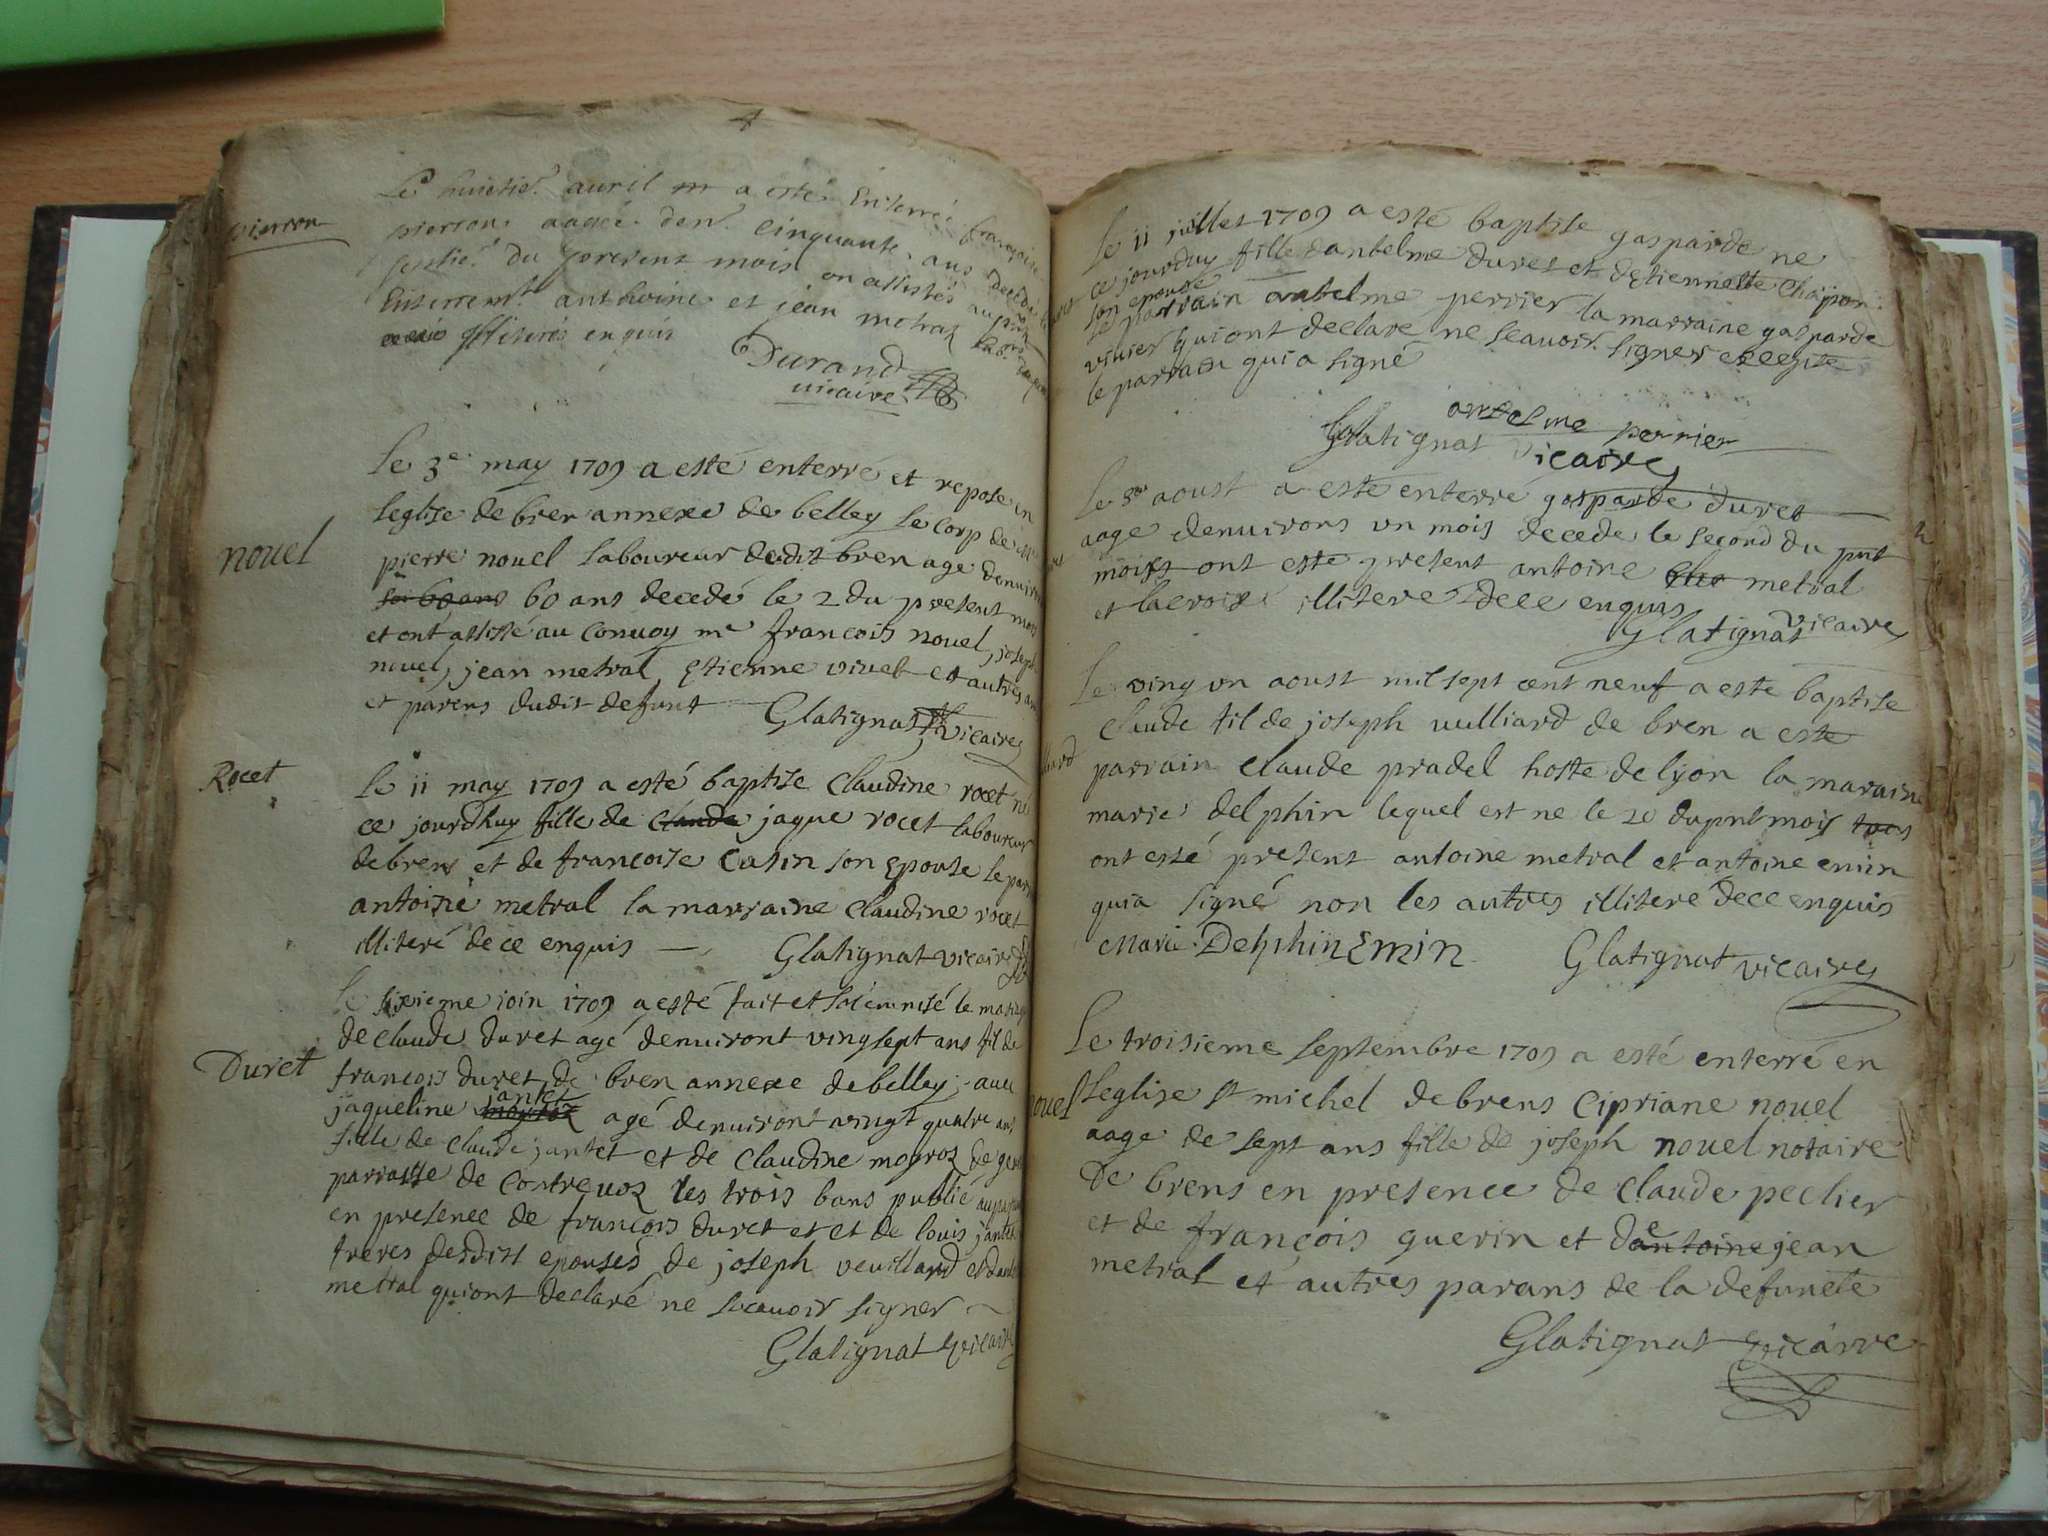 4
pierron
Le huictie. auril m a este Enterree françoise
pierron aagée denv. cinquante ans decedée le
septie. du present mois on assistés au pnt
Enterremt. anthoine et jean metraz
illiterés enquis
Durand
vicaire
nouel
Le 3e may 1709 a esté enterre et repose en
leglise de bren annexe de belley le corp de mre
pierre nouel laboureur dedit bren age denuiron
60 ans 60 ans decedé le 2 du present mois
et ont assisté au conuoy mre françois nouel, joseph
nouel, jean metral, Etienne viuet et autres amis
et parens dudit defunt Glatignat vicaire
Rocet
Le 11 may 1709 a esté baptise Claudine rocet né
ce jourdhuy fille de claude jaque rocet laboureur
de bren et de francoise Casin son Epouse le parr
antoine metral la marraine Claudine rocet
illiteré de ce enquis Glatignat vicaire
Duret
Le sixieme join 1709 a esté fait et solemnisé le mariage
de claude duret agé denuiront vingsept ans fil de
françois duret de bren annexe de belley, auec
jantet
jaqueline agé denuiront vingt quatre ans
fille de claude jantet et de claudine mogroz de
parraisse de contreuoz les trois bans publié
en presence de françois duret et et de louis jantet
freres desdist epousés de joseph veuilland et dant
metral qui ont declaré ne scauoir signer
Glatignat vicaire
Le 11 juillet 1709 a esté baptise gasparde ne
ce jourduy fille dantelme duret et detiennette Chapon
son epouse
le parrain antelme perrier la marraine gasparde
viuier qui ont declare ne scauoir signer excepte
le parrain qui a signé
antelme perrier
Glatignat vicaire
Le 3e aoust a este enterré gasparde duret
aage denuirons un mois decede le second du pnt
mois ont este present antoine metral
et lacroix illitere dece enquis
Glatignat vicaire
Le ving un aoust mil sept cent neuf a este baptise
claude fil de joseph vulliard de bren a este
parrain claude pradel hoste de lyon la maraine
marie delphin lequel est ne le 20 du pnt mois
ont esté present antoine metral et antoine emin
qui a signé non les autres illitere dece enquis
Marie Delphin Emin Glatignat vicaire
nouel
Le troisieme septembre 1709 a esté enterré en
leglise st michel de brens Cipriane nouel
aage de sept ans fille de joseph nouel notaire
de brens en presence de claude peclier
et de françois guerin et de antoine jean
metral et autres parans de la defuncte
Glatignat vicaire